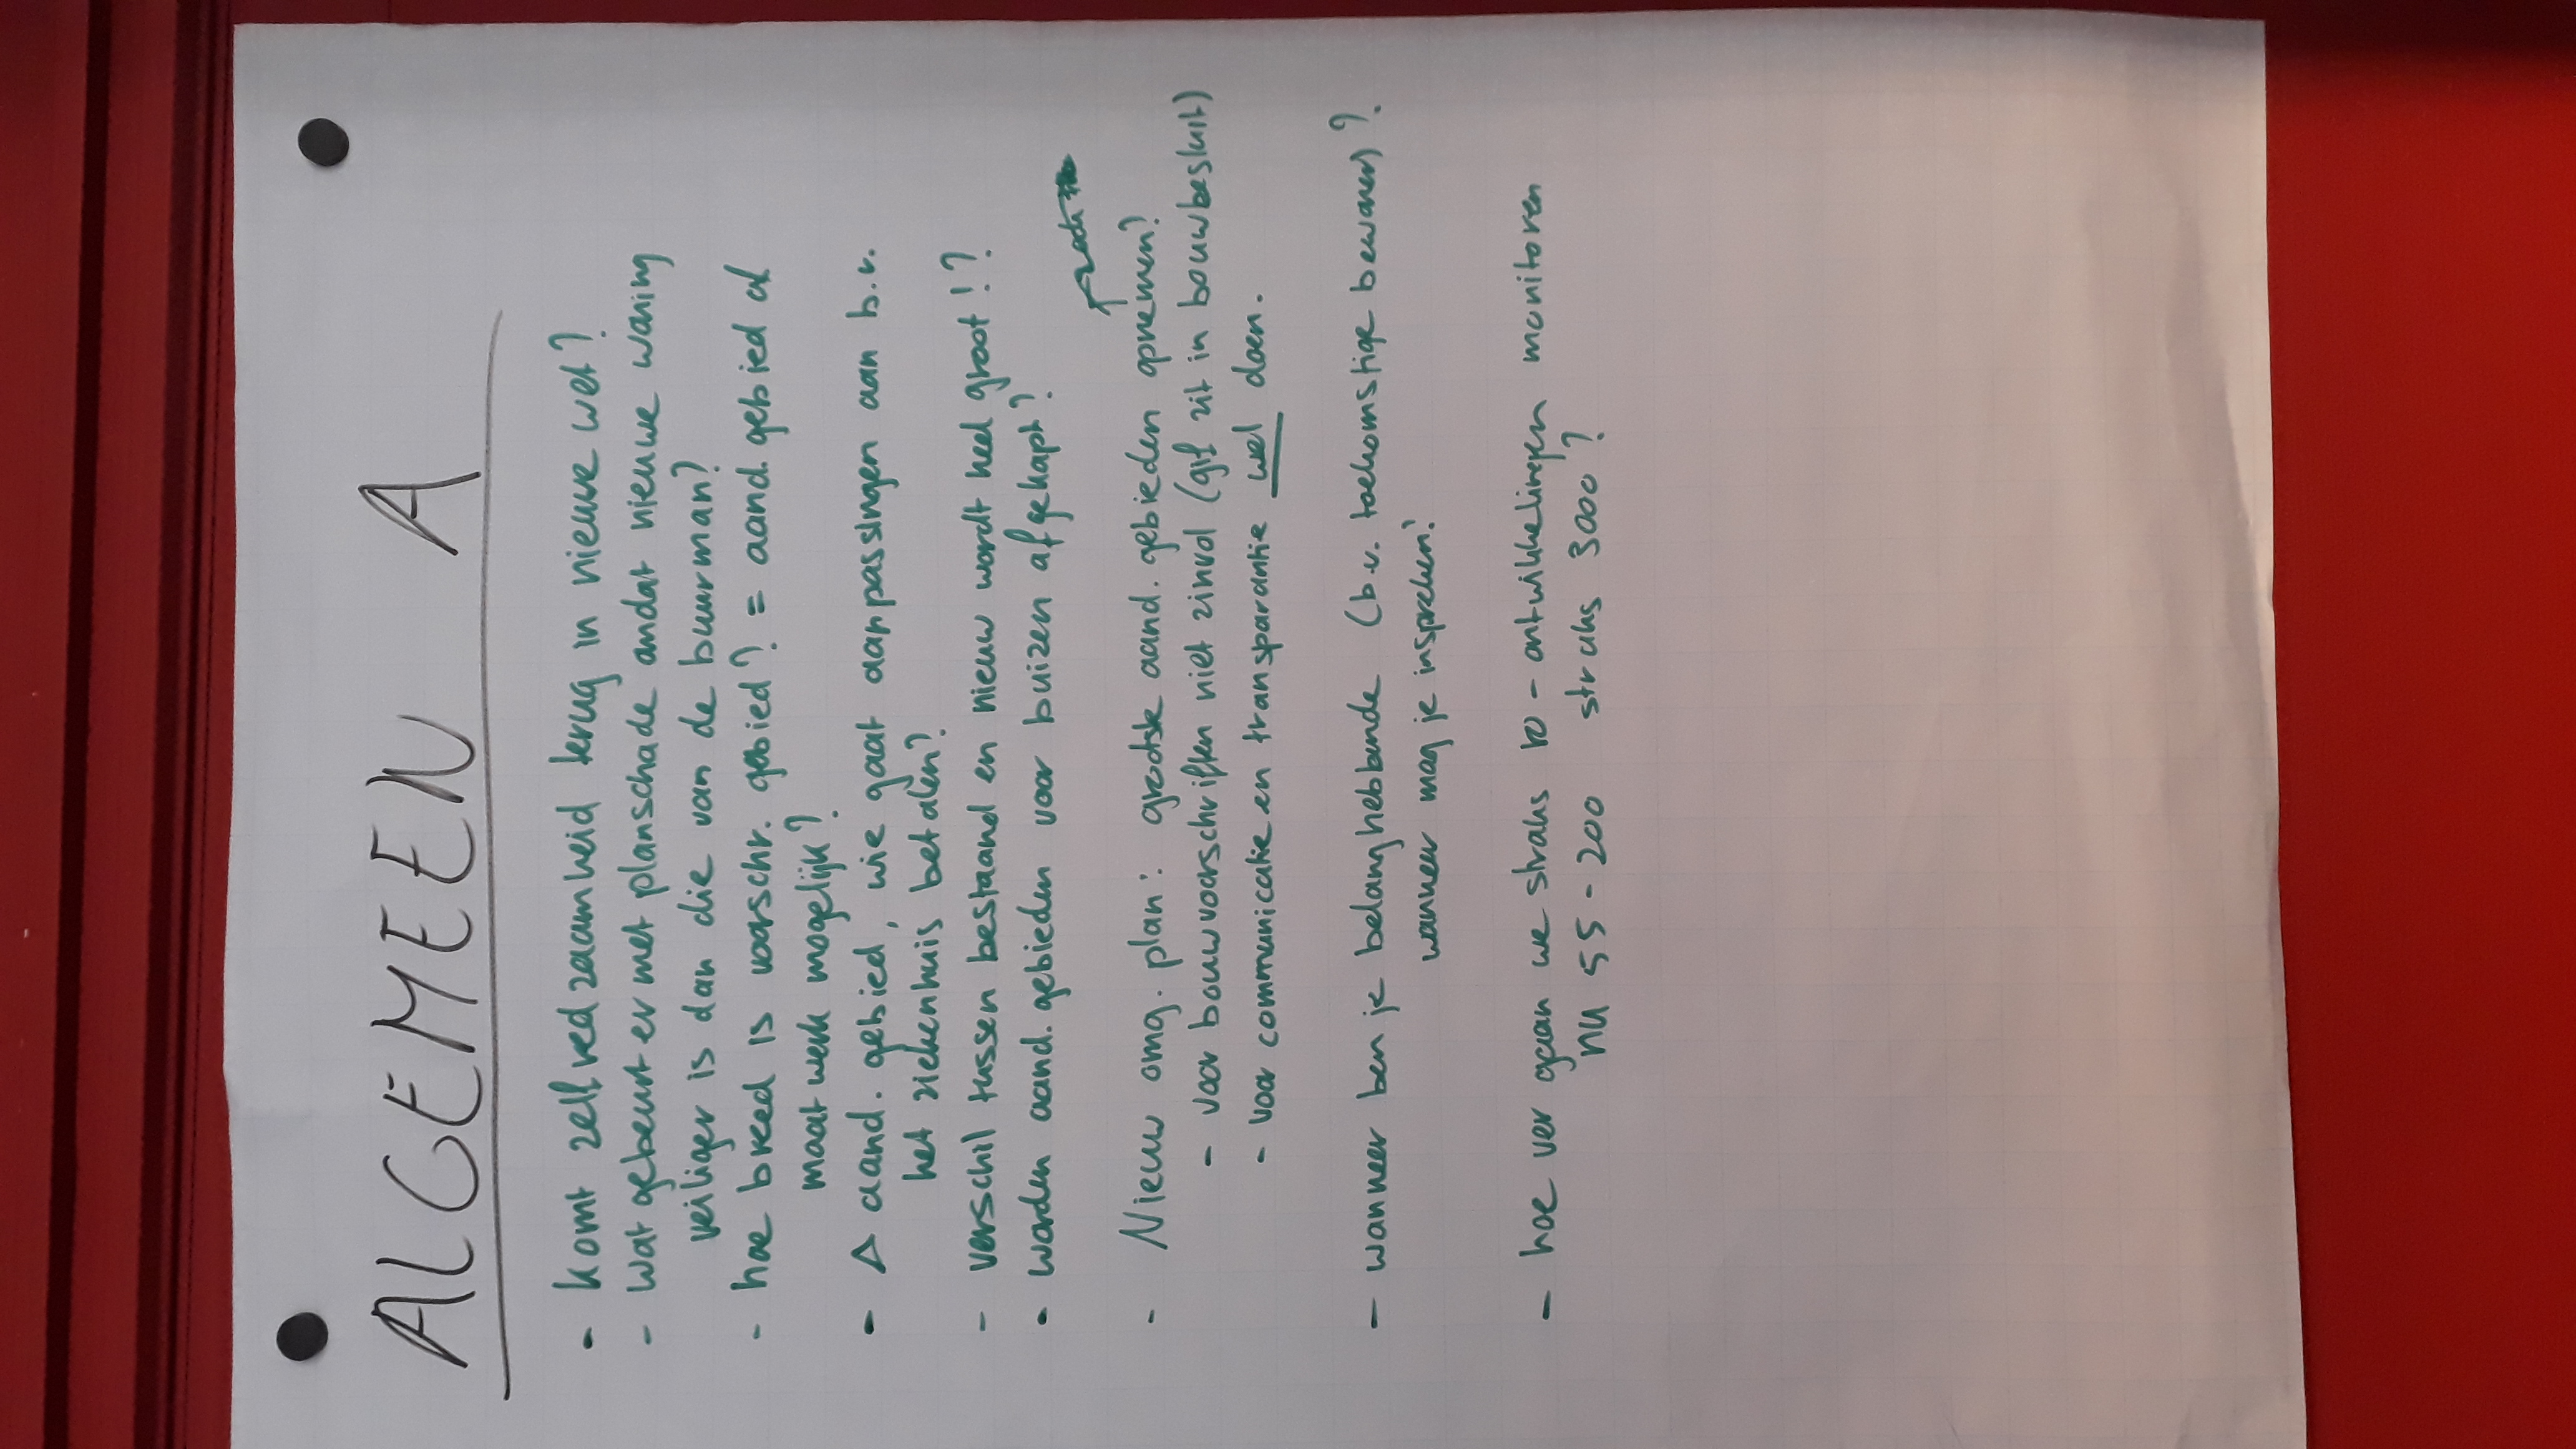 ALGEMEEN A
- komt zelfredzaamheid terug in nieuwe wet?
- wat gebeurt er met planschade omdat nieuwe woning
veiliger is dan die van de buurman?
- hoe breed is voorschr. gebied? = aand. gebied of
maatwerk mogelijk?
- Δ aand. gebied, wie gaat aanpassingen aan b.v.
het ziekenhuis betalen?
- verschil tussen bestaand en nieuw wordt heel groot!?
- worden aand. gebieden voor buizen afgekapt?
- Nieuw omg. plan: grootste aand. gebieden opnemen?
- voor bouwvoorschriften niet zinvol (gif zit in bouwbesluit)
- voor communicatie en transparantie wel doen.
- wanneer ben je belanghebbende (b.v. toekomstige bewoner)?
wanneer mag je inspreken?
- hoe ver gaan we straks ro-ontwikkelingen monitoren
nu 55-200 straks 3000?